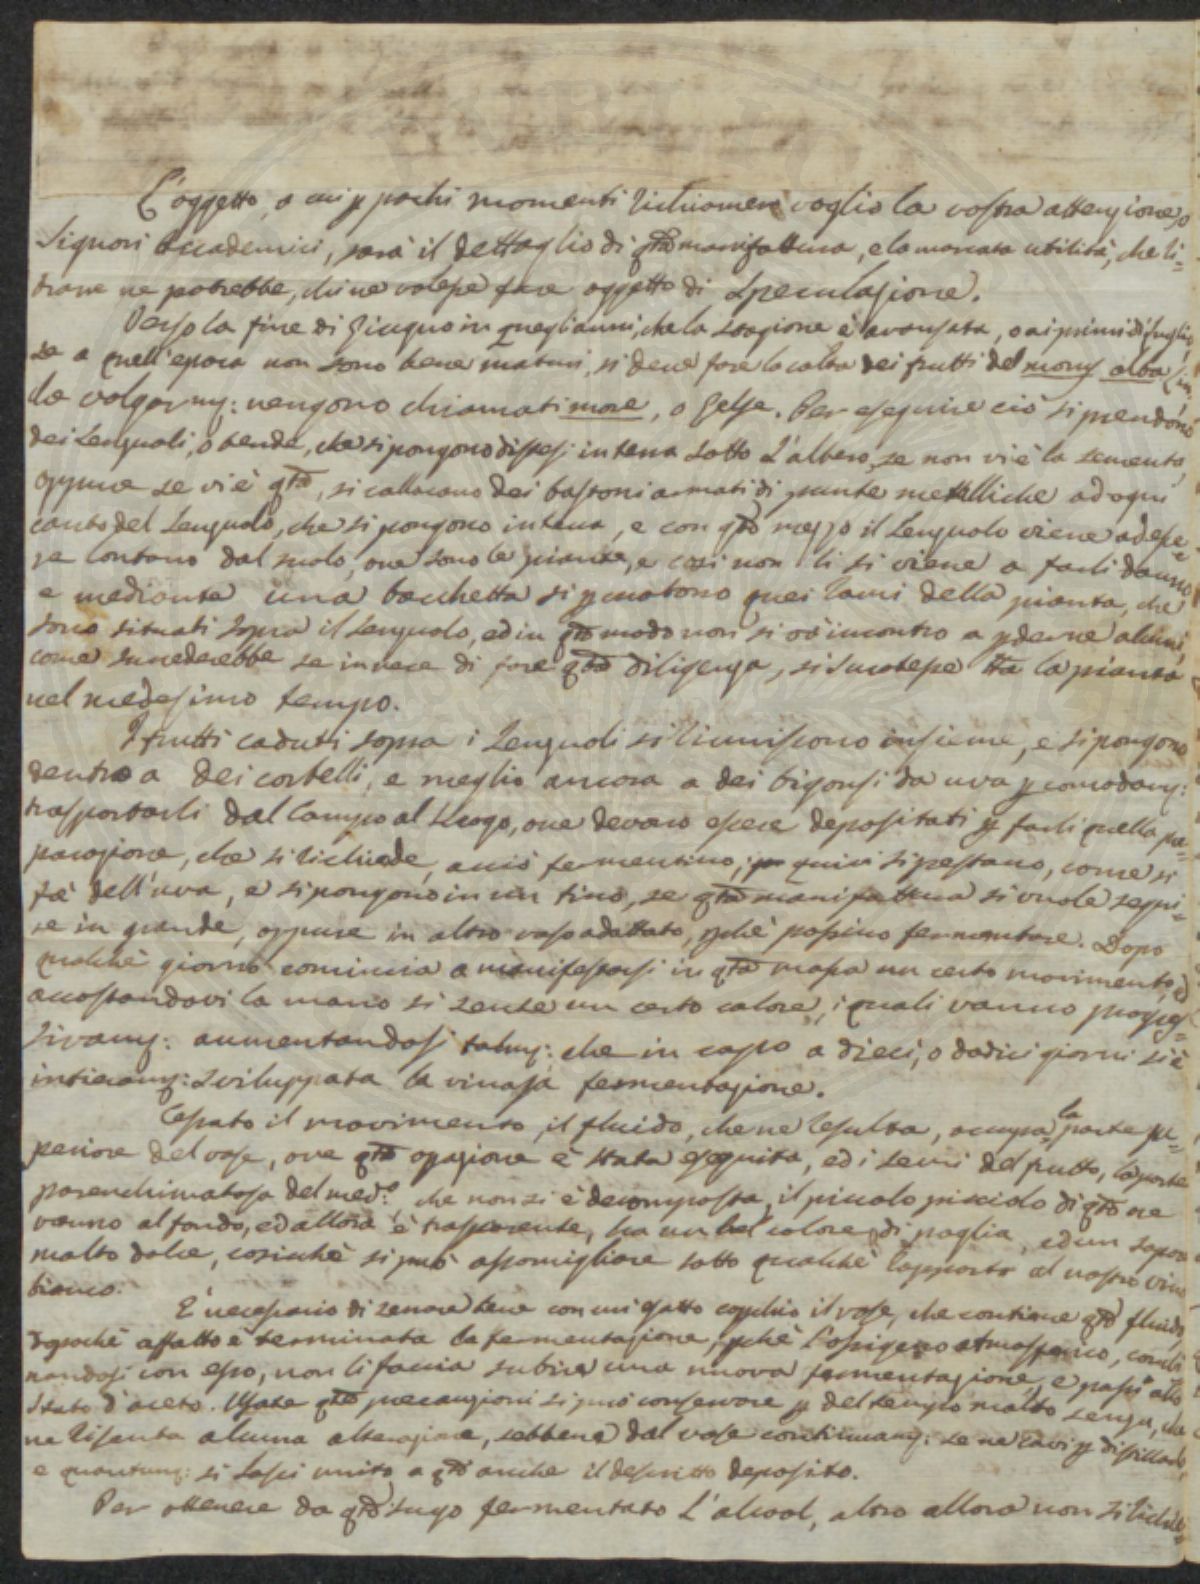 L'oggetto, a cui p pochi momenti richiamare voglio la vostra attenzione, o
Signori Accademici, sarà il dettaglio di qta manifattura, e la marcata utilità, che ri=
trarre ne potrebbe, chi ne volesse fare oggetto di speculazione.
Verso la fine di Giugno in quegli anni, che la stagione è avanzata, o ai primi di Luglio
se a quell'epoca non sono bene maturi, si deve fare la colta dei frutti del morus alba
le volgarmy: vengono chiamati more, o gelse. Per eseguire ciò si prendono
dei Lenzuoli, o tende, che si pongono distesi in terra sotto l'albero, se non vi è la sementa
oppure se vi è qta, si collocano dei bastoni armati di punte metalliche ad ogni
canto del Lenzuolo, che si pongono in terra, e con qto mezzo il Lenzuolo viene ad esse=
re lontano dal suolo, ove sono le piante, e così non li si viene a farli danno
e mediante una bacchetta si pcuotono quei rami della pianta, che
sono situati sopra il Lenzuolo, ed in qto modo non si va incontro a pderne alcuni,
come succederebbe se invece di fare qta diligenza, si scuotesse tta la pianta
nel medesimo tempo.
I frutti caduti sopra i Lenzuoli si riuniscono insieme, e si pongono
dentro a dei corbelli, e meglio ancora a dei bigonsi da uva p comodamy:
trasportarli dal Campo al Luogo, ove devono essere depositati p farli quella pre=
parazione, che si richiede, acciò fermentino; quivi si pestano, come si
fà dell'uva, e si pongono in un tino, se qta manifattura si vuole segui=
re in grande, oppure in altro vaso adattato, pchè possino fermentare. Dopo
qualchè giorno comincia a manifestarsi in qta massa un certo movimento, ed
accostandovi la mano si sente un certo calore, i quali vanno progres=
sivamy: aumentandosi talmy: che in capo a dieci, o dodici giorni si è
intieramy: sviluppata la vinosa fermentazione.
Cessato il movimento, il fluido, che ne resulta, occupa la parte su=
periore del vase, ove qta opazione è stata eseguita, ed i semi del frutto, la parte
parenchimatosa del medo: che non si è decomposta, il piccolo picciolo di qto ne
vanno al fondo, ed allora è trasparente, ha un bel colore di paglia, ed un sapore
molto dolce, cosichè si può assomigliare sotto qualchè rapporto al nostro vino
bianco.
E' necessario di serrare bene con un esatto coperchio il vase, che contiene qto fluido,
dopochè affatto è terminata la fermentazione, pchè l'ossigeno atmosferico, combi
nandosi con esso, non li faccia subire una nuova fermentazione, e passi allo
stato d'aceto. Usate qte precauzioni si può conservare p del tempo molto senza, che
ne risenta alcuna alterazione, sebbene dal vase continuamy: se ne cavi p distillarlo,
e quantunq: si lasci unito a qto anche il descritto deposito.
Per ottenere da qto sugo fermentato l'alcool, altro allora non si richie=